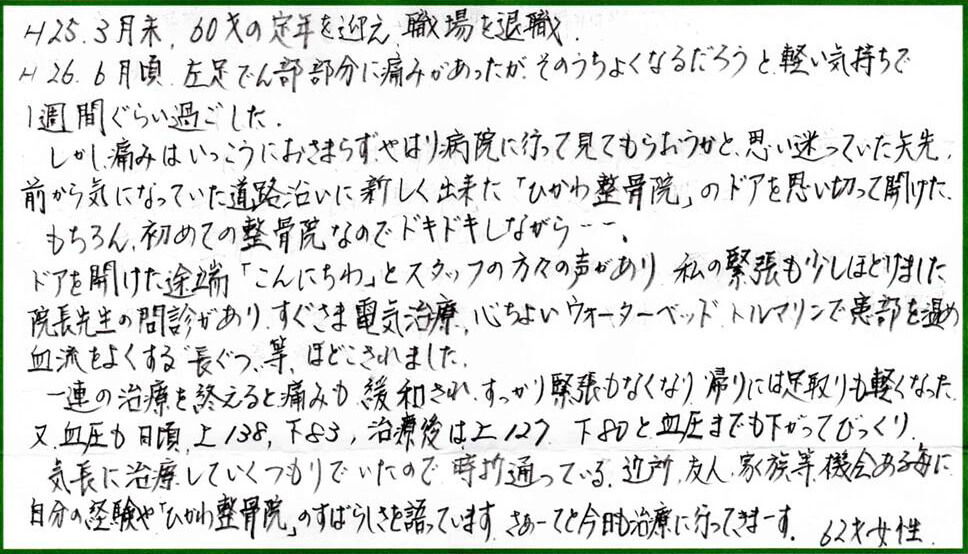 H25.3月末, 60才の定年を迎え, 職場を退職.
H26.6月頃 左足でん部部分に痛みがあったが、そのうちよくなるだろうと、軽い気持ちで
1週間ぐらい過ごした.
しかし、痛みはいっこうにおさまらず、やはり病院に行って見てもらおうかと、思い迷っていた矢先,
前から気になっていた道路沿いに新しく出来た「ひかわ整骨院」のドアを思い切って開けた.
もちろん、初めての整骨院なのでドキドキしながら――.
ドアを開けた途端「こんにちわ」とスタッフの方々の声があり 私の緊張も少しほどけました
院長先生の問診があり、すぐさま電気治療, 心ちよいウォーターベッド トルマリンで患部を温め
血流をよくする"長ぐつ"等、ほどこされました.
一連の治療を終えると痛みも緩和され、すっかり緊張もなくなり 帰りには足取りも軽くなった.
又、血圧も日頃、上138, 下83, 治療後は上127 下80と血圧までも下がってびっくり.
気長に治療していくつもりでいたので 時折通っている. 近所、友人、家族等、機会ある毎に
自分の経験や「ひかわ整骨院」のすばらしさを語っています. さぁーてと今日も治療に行ってきまーす. 62才女性.